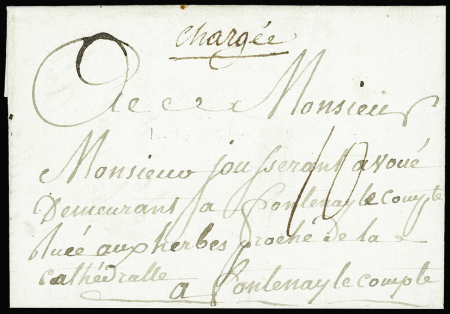 chargée
A Monsieur
Monsieur jousserant avoué
Demeurant a fontenay le compte
10
auxherbes proche de la
cathédralle
a fontenay le compte